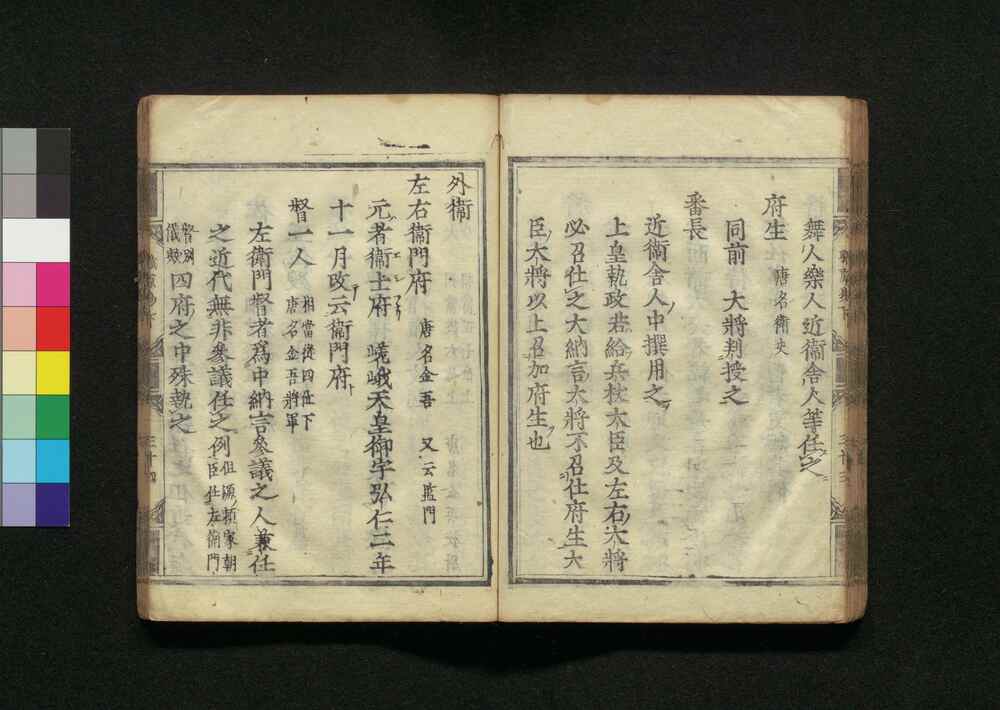 舞人樂人近衞舍人等任之
府生 唐名衞史
同前 大將判授之
番長
近衞舍人中撰用之
上皇執政若給兵杖大臣及左右大將
必召仕之大納言大將不召仕府生大
臣大將以上召加府生也
外衞
左右衞門府 唐名金吾 又云監門
元者衞士府 嵯峨天皇御宇弘仁二年
十一月改云衞門府
督一人 相當從四位下 唐名金吾將軍
左衞門督者爲中納言參議之人兼任
之近代無非參議任之例 但源頼家朝臣任左衞門
督別儀歟 四府之中殊執之